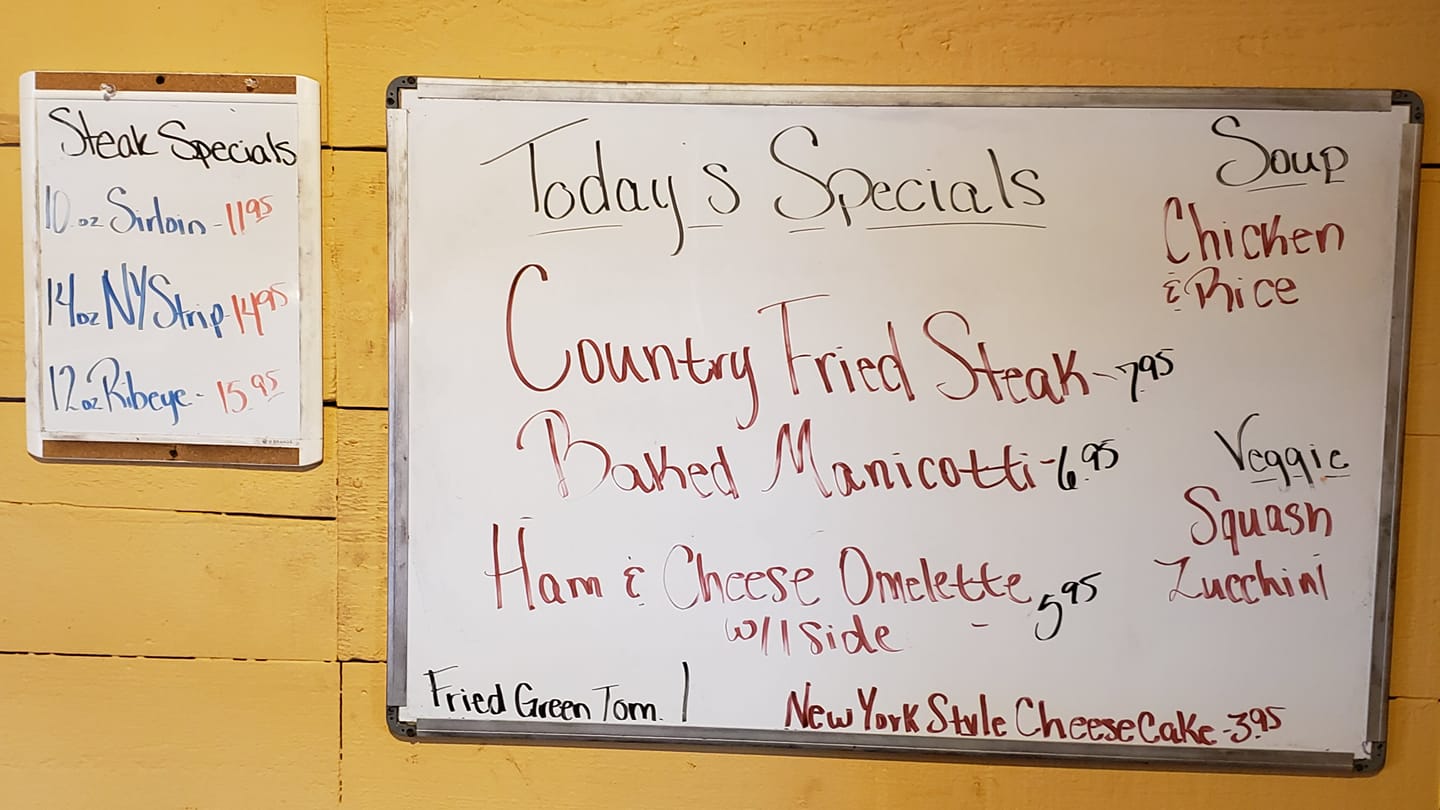 Steak Specials
10 oz Sirloin - 11.95
14 oz NY Strip - 14.95
12 oz Ribeye - 15.95
Today's Specials
Country Fried Steak - 7.95
Baked Manicotti - 6.95
Ham & Cheese Omelette - 5.95
w/ 1 side
Fried Green Tom. 1
New York Style CheeseCake - 3.95
Soup
Chicken
& Rice
Veggie
Squash
Zucchini